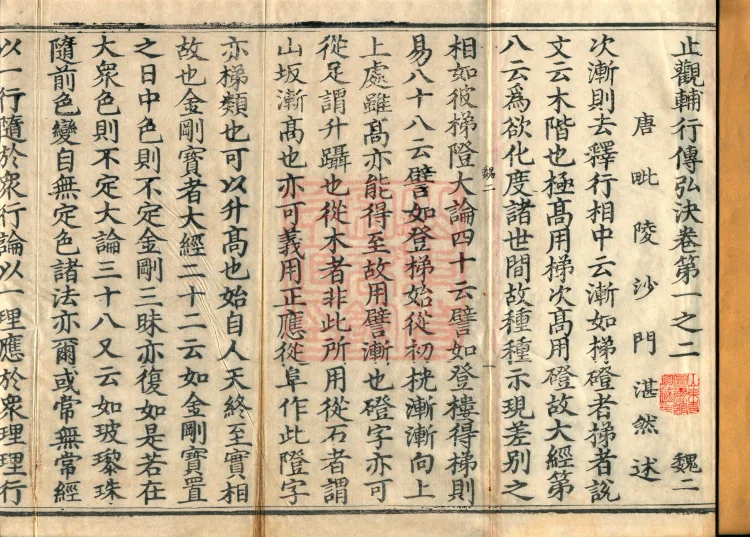 止觀輔行傳弘決卷第一之二　魏二
唐毗陵沙門湛然述
次漸則去釋行相中云漸如梯磴者梯者說
文云木階也極高用梯次高用磴故大經第
八云為欲化度諸世間故種種示現差別之
相如彼梯隥大論四十云譬如登樓得梯則
魏二
易八十八云譬如登梯始從初桄漸漸向上
上處雖高亦能得至故用譬漸也磴字亦可
從足謂升躡也從木者非此所用從石者謂
山坂漸高也亦可義用正應從阜作此隥字
亦梯類也可以升高也始自人天終至實相
故也金剛寶者大經二十二云如金剛寶置
之日中色則不定金剛三昧亦復如是若在
大眾色則不定大論三十八又云如玻瓈珠
隨前色變自無定色諸法亦爾或常無常經
以一行隨於眾行論以一理應於眾理理行